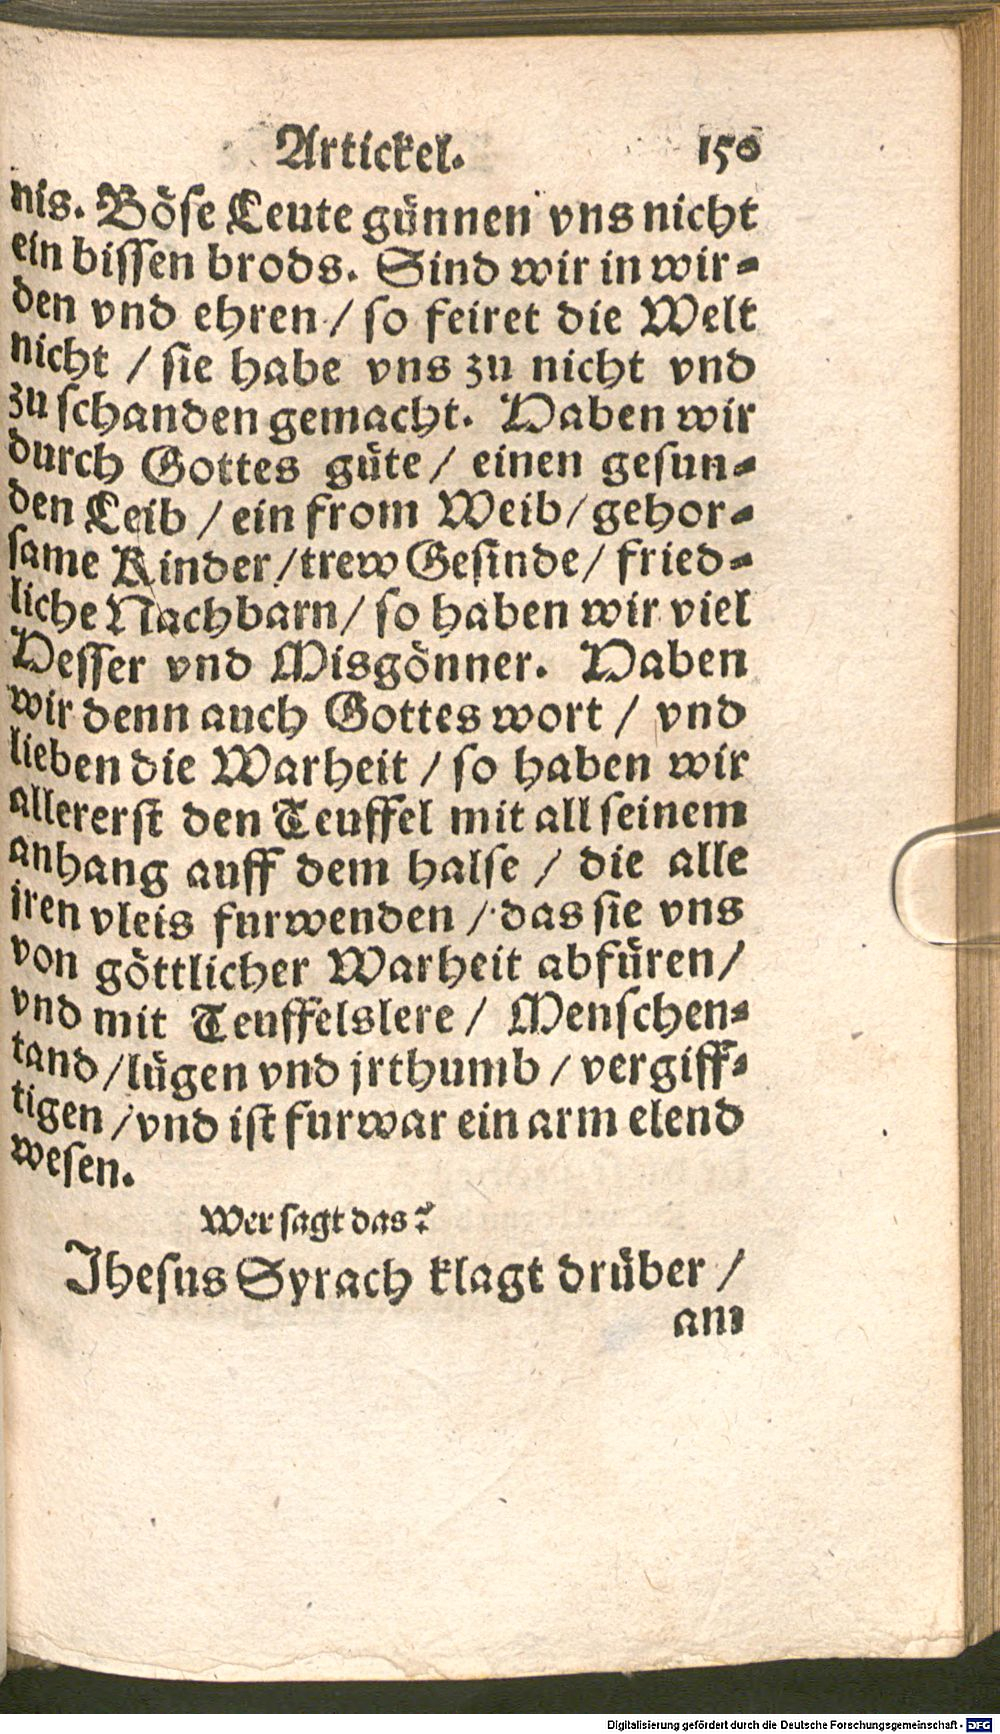 Artickel. 150
nis. Böse Leute günnen vns nicht
ein bissen brods. Sind wir in wir-
den vnd ehren / so feiret die Welt
nicht / sie habe vns zu nicht vnd
zu schanden gemacht. Haben wir
durch Gottes güte / einen gesun-
den Leib / ein from Weib / gehor-
same Kinder / trew Gesinde / fried-
liche Nachbarn / so haben wir viel
Hesser vnd Misgönner. Haben
wir denn auch Gottes wort / vnd
lieben die Warheit / so haben wir
allererst den Teuffel mit all seinem
anhang auff dem halse / die alle
jren vleis furwenden / das sie vns
von göttlicher Warheit abfüren /
vnd mit Teuffelslere / Menschen-
tand / lügen vnd jrthumb / vergiff-
tigen / vnd ist furwar ein arm elend
wesen.
Wer sagt das?
Jhesus Syrach klagt drüber /
am
Digitalisierung gefördert durch die Deutsche Forschungsgemeinschaft - DFG